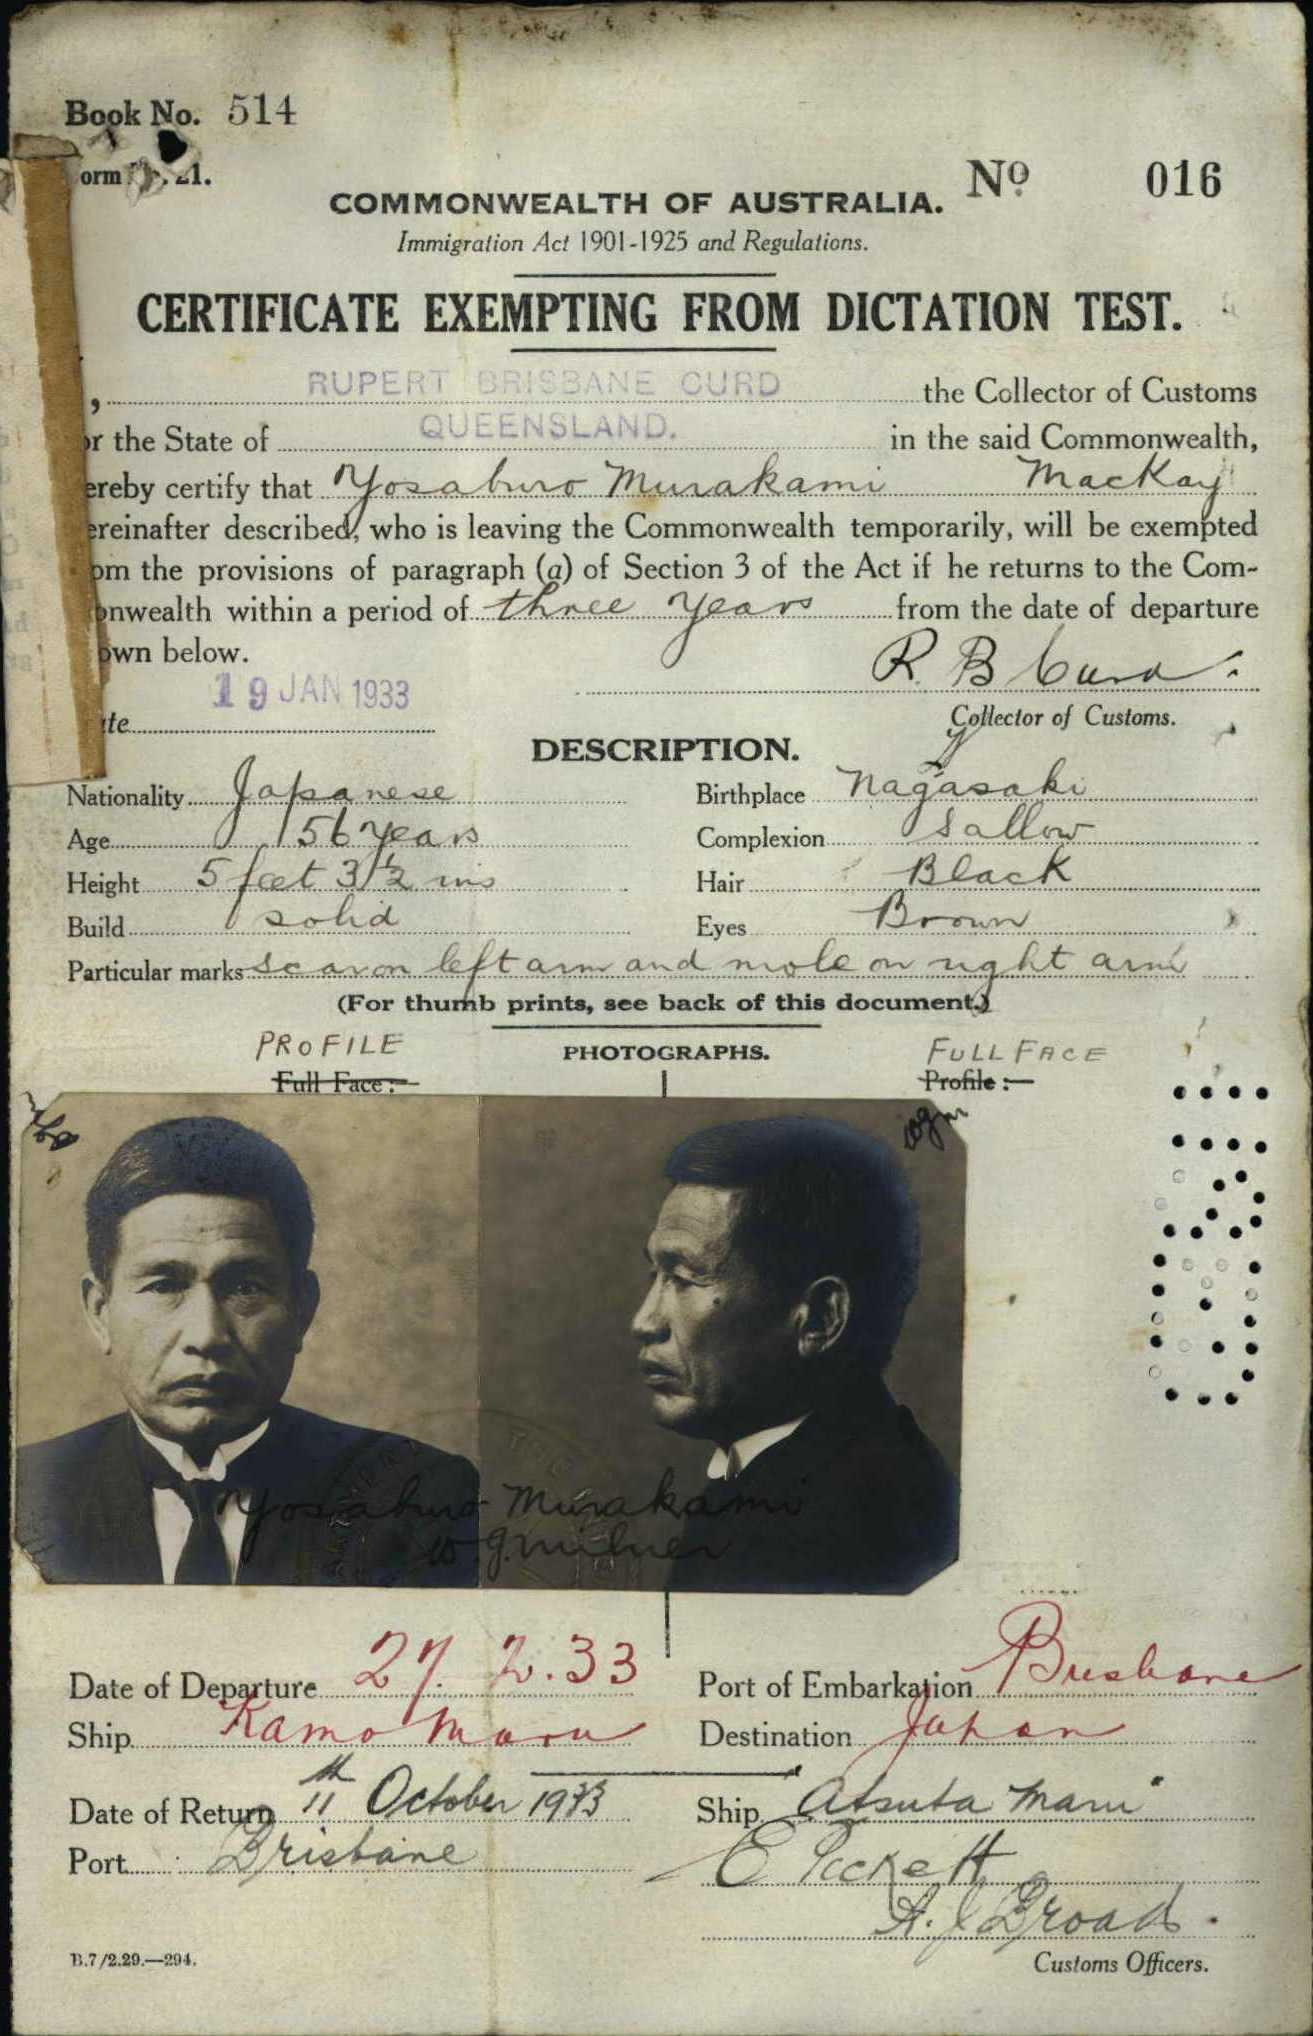 Book No. 514
orm No. 21.
No 016
COMMONWEALTH OF AUSTRALIA.
Immigration Act 1901-1925 and Regulations.
CERTIFICATE EXEMPTING FROM DICTATION TEST.
, RUPERT BRISBANE CURD the Collector of Customs
or the State of QUEENSLAND. in the said Commonwealth,
ereby certify that Yosaburo Murakami MacKay
ereinafter described, who is leaving the Commonwealth temporarily, will be exempted
om the provisions of paragraph (a) of Section 3 of the Act if he returns to the Com-
onwealth within a period of three years from the date of departure
own below.
R. B Curd.
19 JAN 1933
te
Collector of Customs.
DESCRIPTION.
Nationality Japanese Birthplace Nagasaki
Age 56 years Complexion Sallow
Height 5 feet 3 1/2 ins Hair Black
Build solid Eyes Brown
Particular marks scar on left arm and mole on right arm
(For thumb prints, see back of this document.)
PROFILE PHOTOGRAPHS. FULL FACE
Full Face:— Profile:—
Yosaburo Murakami
W.G. Milner
Date of Departure 27. 2. 33 Port of Embarkation Brisbane
Ship Kamo Maru Destination Japan
Date of Return 11th October 1933 Ship "Atsuta Maru"
Port Brisbane
Customs Officers.
B.7/2.29.—294.